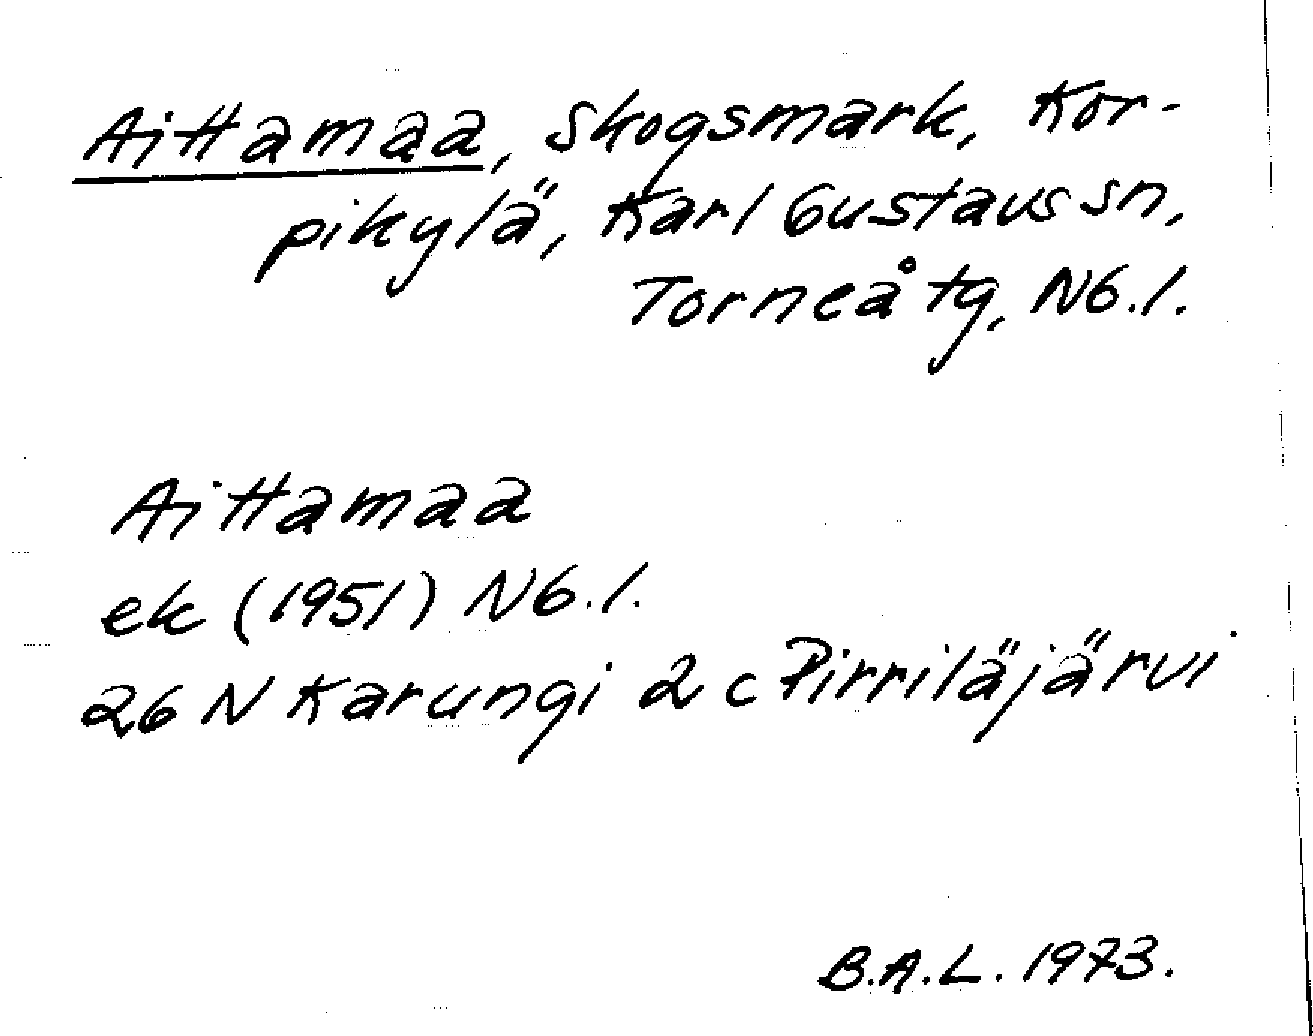 Aittamaa, skogsmark, Kor-
pikylä, Karl Gustavs sn,
Torneå tg, Nb.l.
Aittamaa
ek (1951) Nb.l.
26 N Karungi 2 c Pirriläjärvi
B.A.L. 1973.